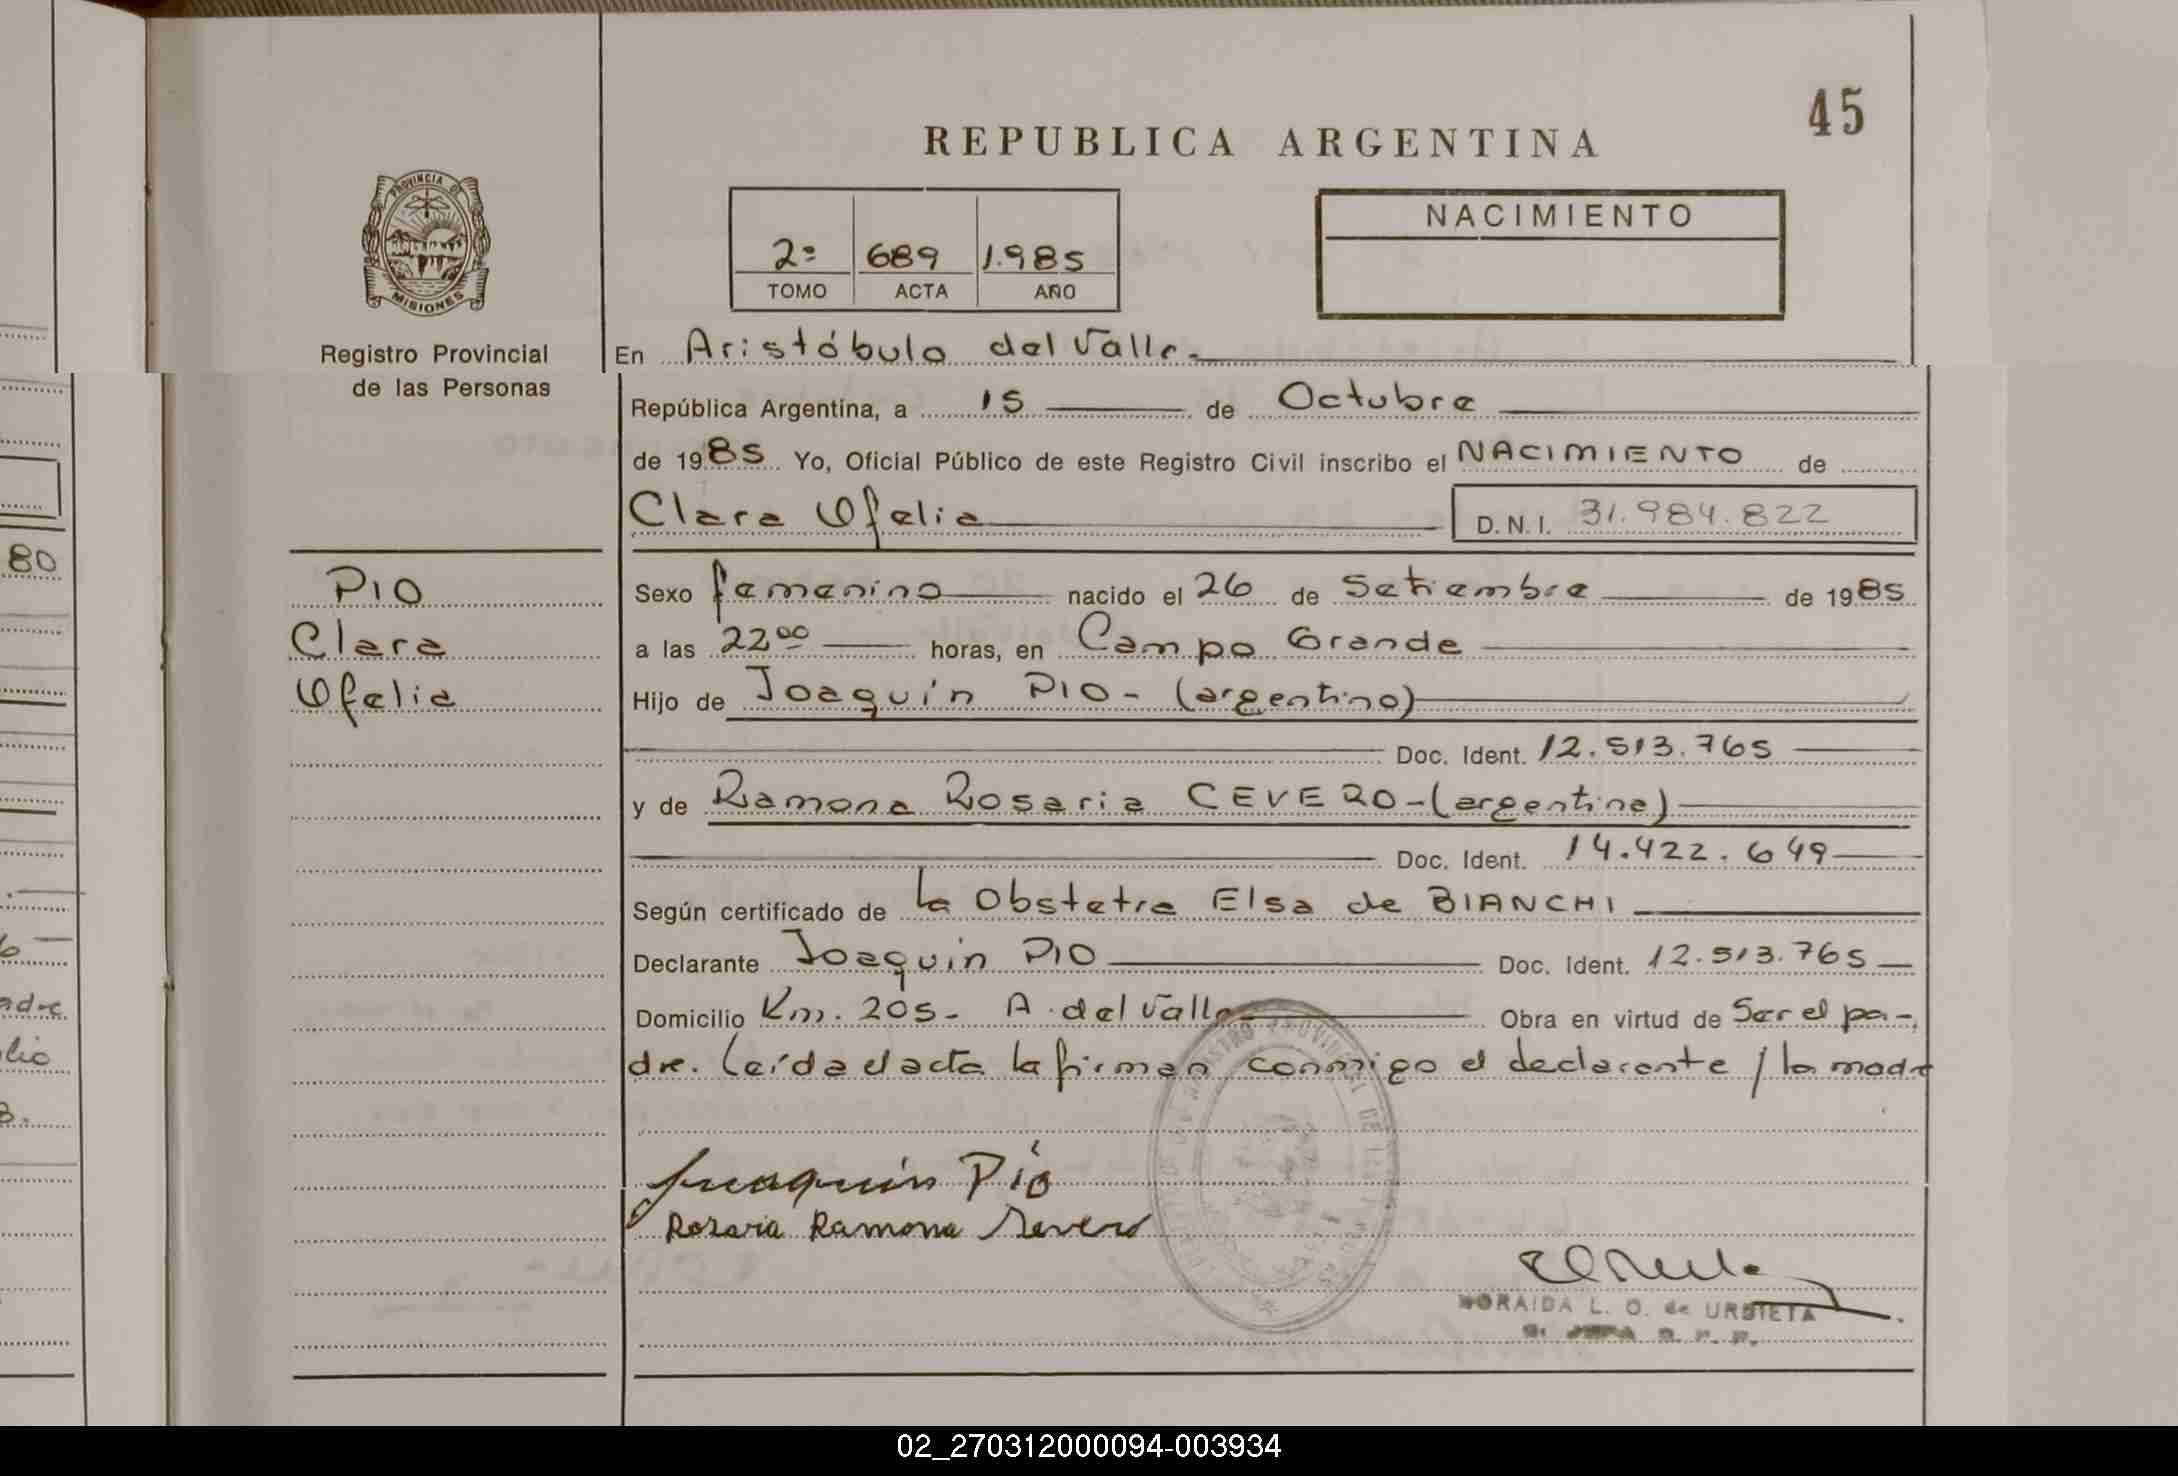 45
REPUBLICA ARGENTINA
PROVINCIA DE
MISIONES
2º 689 1.985
TOMO ACTA AÑO
NACIMIENTO
Registro Provincial
de las Personas
En Aristóbulo del Valle.
República Argentina, a 15 de Octubre
de 1985 Yo, Oficial Público de este Registro Civil inscribo el NACIMIENTO de
Clara Ofelia D.N.I. 31.984.822
80
PIO
Clara
Ofelia
Sexo femenino nacido el 26 de Setiembre de 1985
a las 22⁰⁰ horas, en Campo Grande
Hijo de Joaquín PIO- (argentino)
Doc. Ident. 12.513.765
y de Ramona Rosaria CEVERO-(argentina)
Doc. Ident. 14.422.649
Según certificado de la Obstetra Elsa de BIANCHI
Declarante Joaquin PIO Doc. Ident. 12.513.765
Domicilio Km. 205- A. del Valle Obra en virtud de Ser el pa-
dre. Leída el acta la firman conmigo el declarante / la madre
Juaquín Pío
Rosaria Ramona Severo
NORAIDA L. O. de URBIETA
02_270312000094-003934